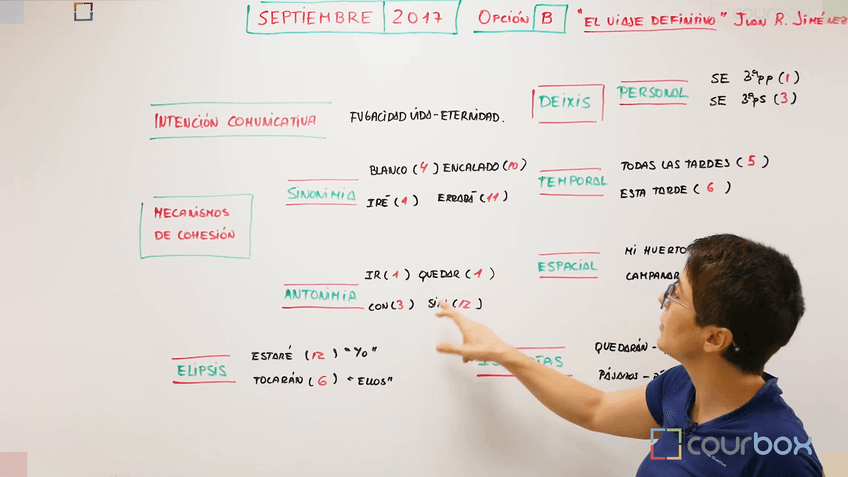 SEPTIEMBRE 2017 OPCIÓN B "EL VIAJE DEFINITIVO" JUAN R. JIMÉNEZ
INTENCIÓN COMUNICATIVA FUGACIDAD VIDA-ETERNIDAD.
MECANISMOS
DE COHESIÓN
SINONIMIA
BLANCO (4) ENCALADO (10)
IRÉ (1) ERRARÁ (11)
ANTONIMIA
IR (1) QUEDAR (1)
CON (3) SIN (12)
ELIPSIS
ESTARÉ (12) "YO"
TOCARÁN (6) "ELLOS"
DEIXIS
PERSONAL
SE 3ªPP (1)
SE 3ªPS (3)
TEMPORAL
TODAS LAS TARDES (5)
ESTA TARDE (6)
ESPACIAL
MI HUERTO
QUEDARÁN -
PÁJAROS -
courbox